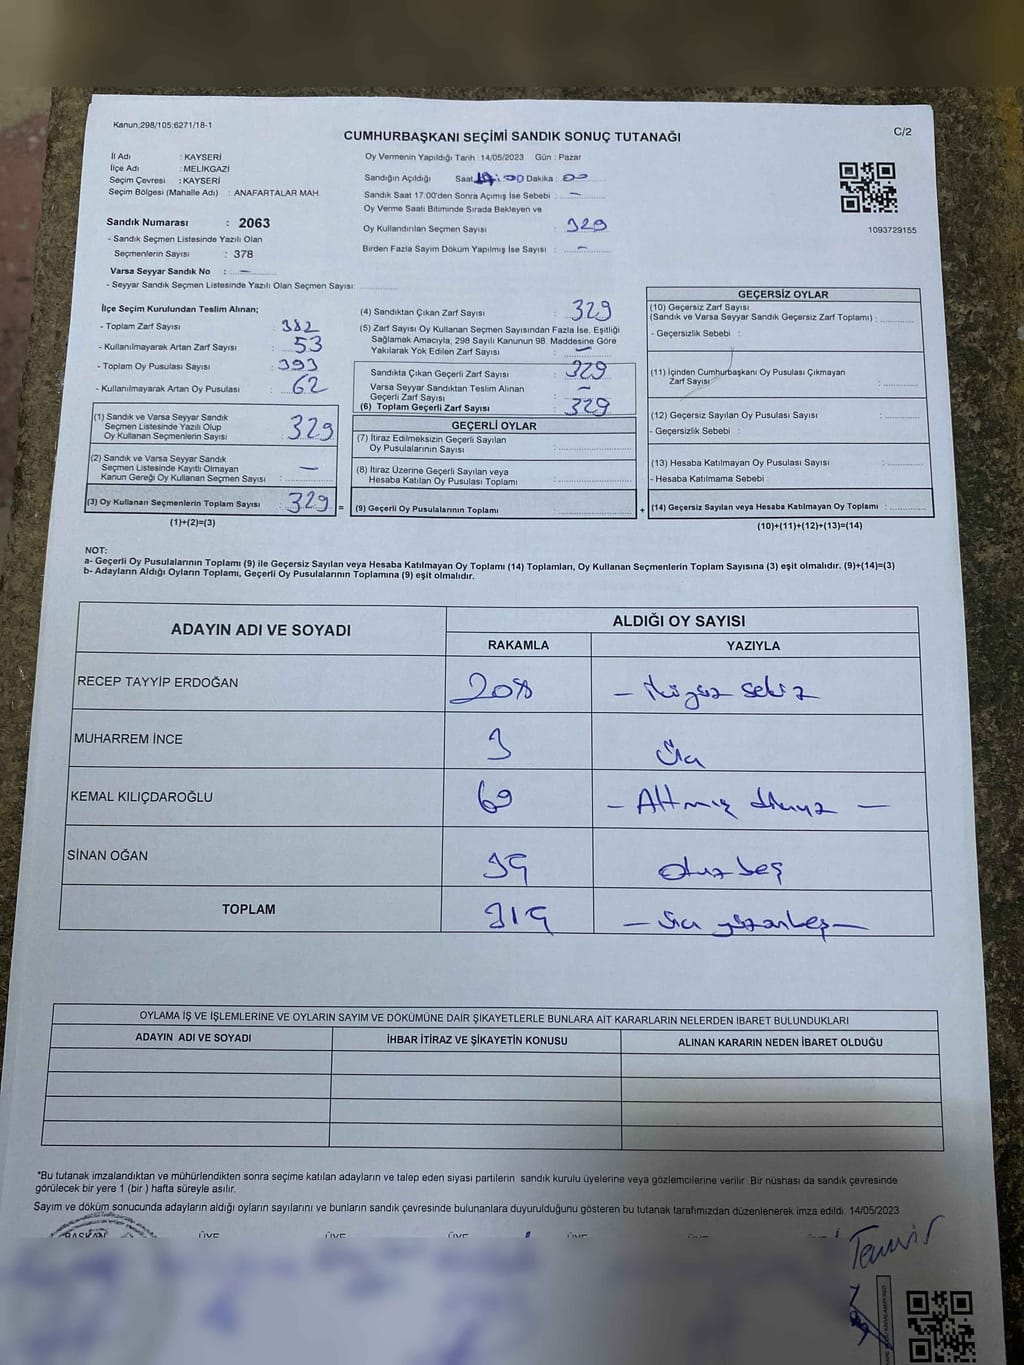 Kanun;298/105;6271/18-1
CUMHURBAŞKANI SEÇİMİ SANDIK SONUÇ TUTANAĞI
C/2
İl Adı : KAYSERİ
İlçe Adı : MELİKGAZİ
Seçim Çevresi : KAYSERİ
Seçim Bölgesi (Mahalle Adı) : ANAFARTALAR MAH.
Oy Vermenin Yapıldığı Tarih : 14/05/2023 Gün : Pazar
Sandığın Açıldığı Saat Dakika : 00
Sandık Saat 17:00'den Sonra Açımış İse Sebebi : —
Oy Verme Saati Bitiminde Sırada Bekleyen ve
Oy Kullandırılan Seçmen Sayısı : 329
Birden Fazla Sayım Döküm Yapılmış İse Sayısı : —
1093729155
Sandık Numarası : 2063
- Sandık Seçmen Listesinde Yazılı Olan
Seçmenlerin Sayısı : 378
Varsa Seyyar Sandık No : —
- Seyyar Sandık Seçmen Listesinde Yazılı Olan Seçmen Sayısı:
İlçe Seçim Kurulundan Teslim Alınan;
- Toplam Zarf Sayısı : 382
- Kullanılmayarak Artan Zarf Sayısı : 53
- Toplam Oy Pusulası : 393
- Kullanılmayarak Artan Oy Pusulası : 62
(1) Sandık ve Varsa Seyyar Sandık
Seçmen Listesinde Yazılı Olup
Oy Kullanan Seçmenlerin Sayısı : 329
(2) Sandık ve Varsa Seyyar Sandık
Seçmen Listesinde Kayıtlı Olmayan
Kanun Gereği Oy Kullanan Seçmen Sayısı : —
(3) Oy Kullanan Seçmenlerin Toplam Sayısı : 329
(1)+(2)=(3)
(4) Sandıktan Çıkan Zarf Sayısı : 329
(5) Zarf Sayısı Oy Kullanan Seçmen Sayısından Fazla İse, Eşitliği
Sağlamak Amacıyla, 298 Sayılı Kanunun 98. Maddesine Göre
Yakılarak Yok Edilen Zarf Sayısı : —
Sandıkta Çıkan Geçerli Zarf Sayısı : 329
Varsa Seyyar Sandıktan Teslim Alınan
Geçerli Zarf Sayısı : —
(6) Toplam Geçerli Zarf Sayısı : 329
GEÇERLİ OYLAR
(7) İtiraz Edilmeksizin Geçerli Sayılan
Oy Pusulalarının Sayısı :
(8) İtiraz Üzerine Geçerli Sayılan veya
Hesaba Katılan Oy Pusulası Toplamı :
= (9) Geçerli Oy Pusulalarının Toplamı :
GEÇERSİZ OYLAR
(10) Geçersiz Zarf Sayısı
(Sandık ve Varsa Seyyar Sandık Geçersiz Zarf Toplamı) :
- Geçersizlik Sebebi :
(11) İçinden Cumhurbaşkanı Oy Pusulası Çıkmayan
Zarf Sayısı :
(12) Geçersiz Sayılan Oy Pusulası Sayısı :
- Geçersizlik Sebebi :
(13) Hesaba Katılmayan Oy Pusulası Sayısı :
- Hesaba Katılmama Sebebi :
+ (14) Geçersiz Sayılan veya Hesaba Katılmayan Oy Toplamı :
(10)+(11)+(12)+(13)=(14)
NOT:
a- Geçerli Oy Pusulalarının Toplamı (9) ile Geçersiz Sayılan veya Hesaba Katılmayan Oy Toplamı (14) Toplamları, Oy Kullanan Seçmenlerin Toplam Sayısına (3) eşit olmalıdır. (9)+(14)=(3)
b- Adayların Aldığı Oyların Toplamı, Geçerli Oy Pusulalarının Toplamına (9) eşit olmalıdır.
ADAYIN ADI VE SOYADI
ALDIĞI OY SAYISI
RAKAMLA YAZIYLA
RECEP TAYYİP ERDOĞAN 208 — ikiyüz sekiz
MUHARREM İNCE 3 Üç
KEMAL KILIÇDAROĞLU 69 — Altmış dokuz —
SİNAN OĞAN 35 otuz beş
TOPLAM 315 — üç yüzonbeş —
OYLAMA İŞ VE İŞLEMLERİNE VE OYLARIN SAYIM VE DÖKÜMÜNE DAİR ŞİKAYETLERLE BUNLARA AİT KARARLARIN NELERDEN İBARET BULUNDUKLARI
ADAYIN ADI VE SOYADI İHBAR İTİRAZ VE ŞİKAYETİN KONUSU ALINAN KARARIN NEDEN İBARET OLDUĞU
*Bu tutanak imzalandıktan ve mühürlendikten sonra seçime katılan adayların ve talep eden siyasi partilerin sandık kurulu üyelerine veya gözlemcilerine verilir. Bir nüshası da sandık çevresinde
görülecek bir yere 1 (bir ) hafta süreyle asılır.
Sayım ve döküm sonucunda adayların aldığı oyların sayılarını ve bunların sandık çevresinde bulunanlara duyurulduğunu gösteren bu tutanak tarafımızdan düzenlenerek imza edildi. 14/05/2023
BAŞKAN ÜYE ÜYE ÜYE ÜYE ÜYE